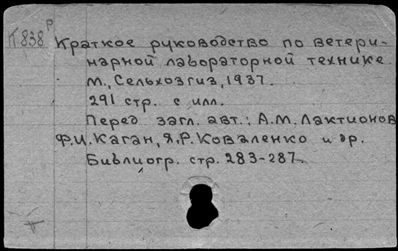 К 838 р
Краткое руководство по ветери-
нарной лабораторной технике.
М., Сельхозгиз, 1937.
291 стр. с илл.
Перед загл. авт.: А.М. Лактионов
Ф.И. Каган, Я.Р. Коваленко и др.
Библиогр. стр. 283-287.